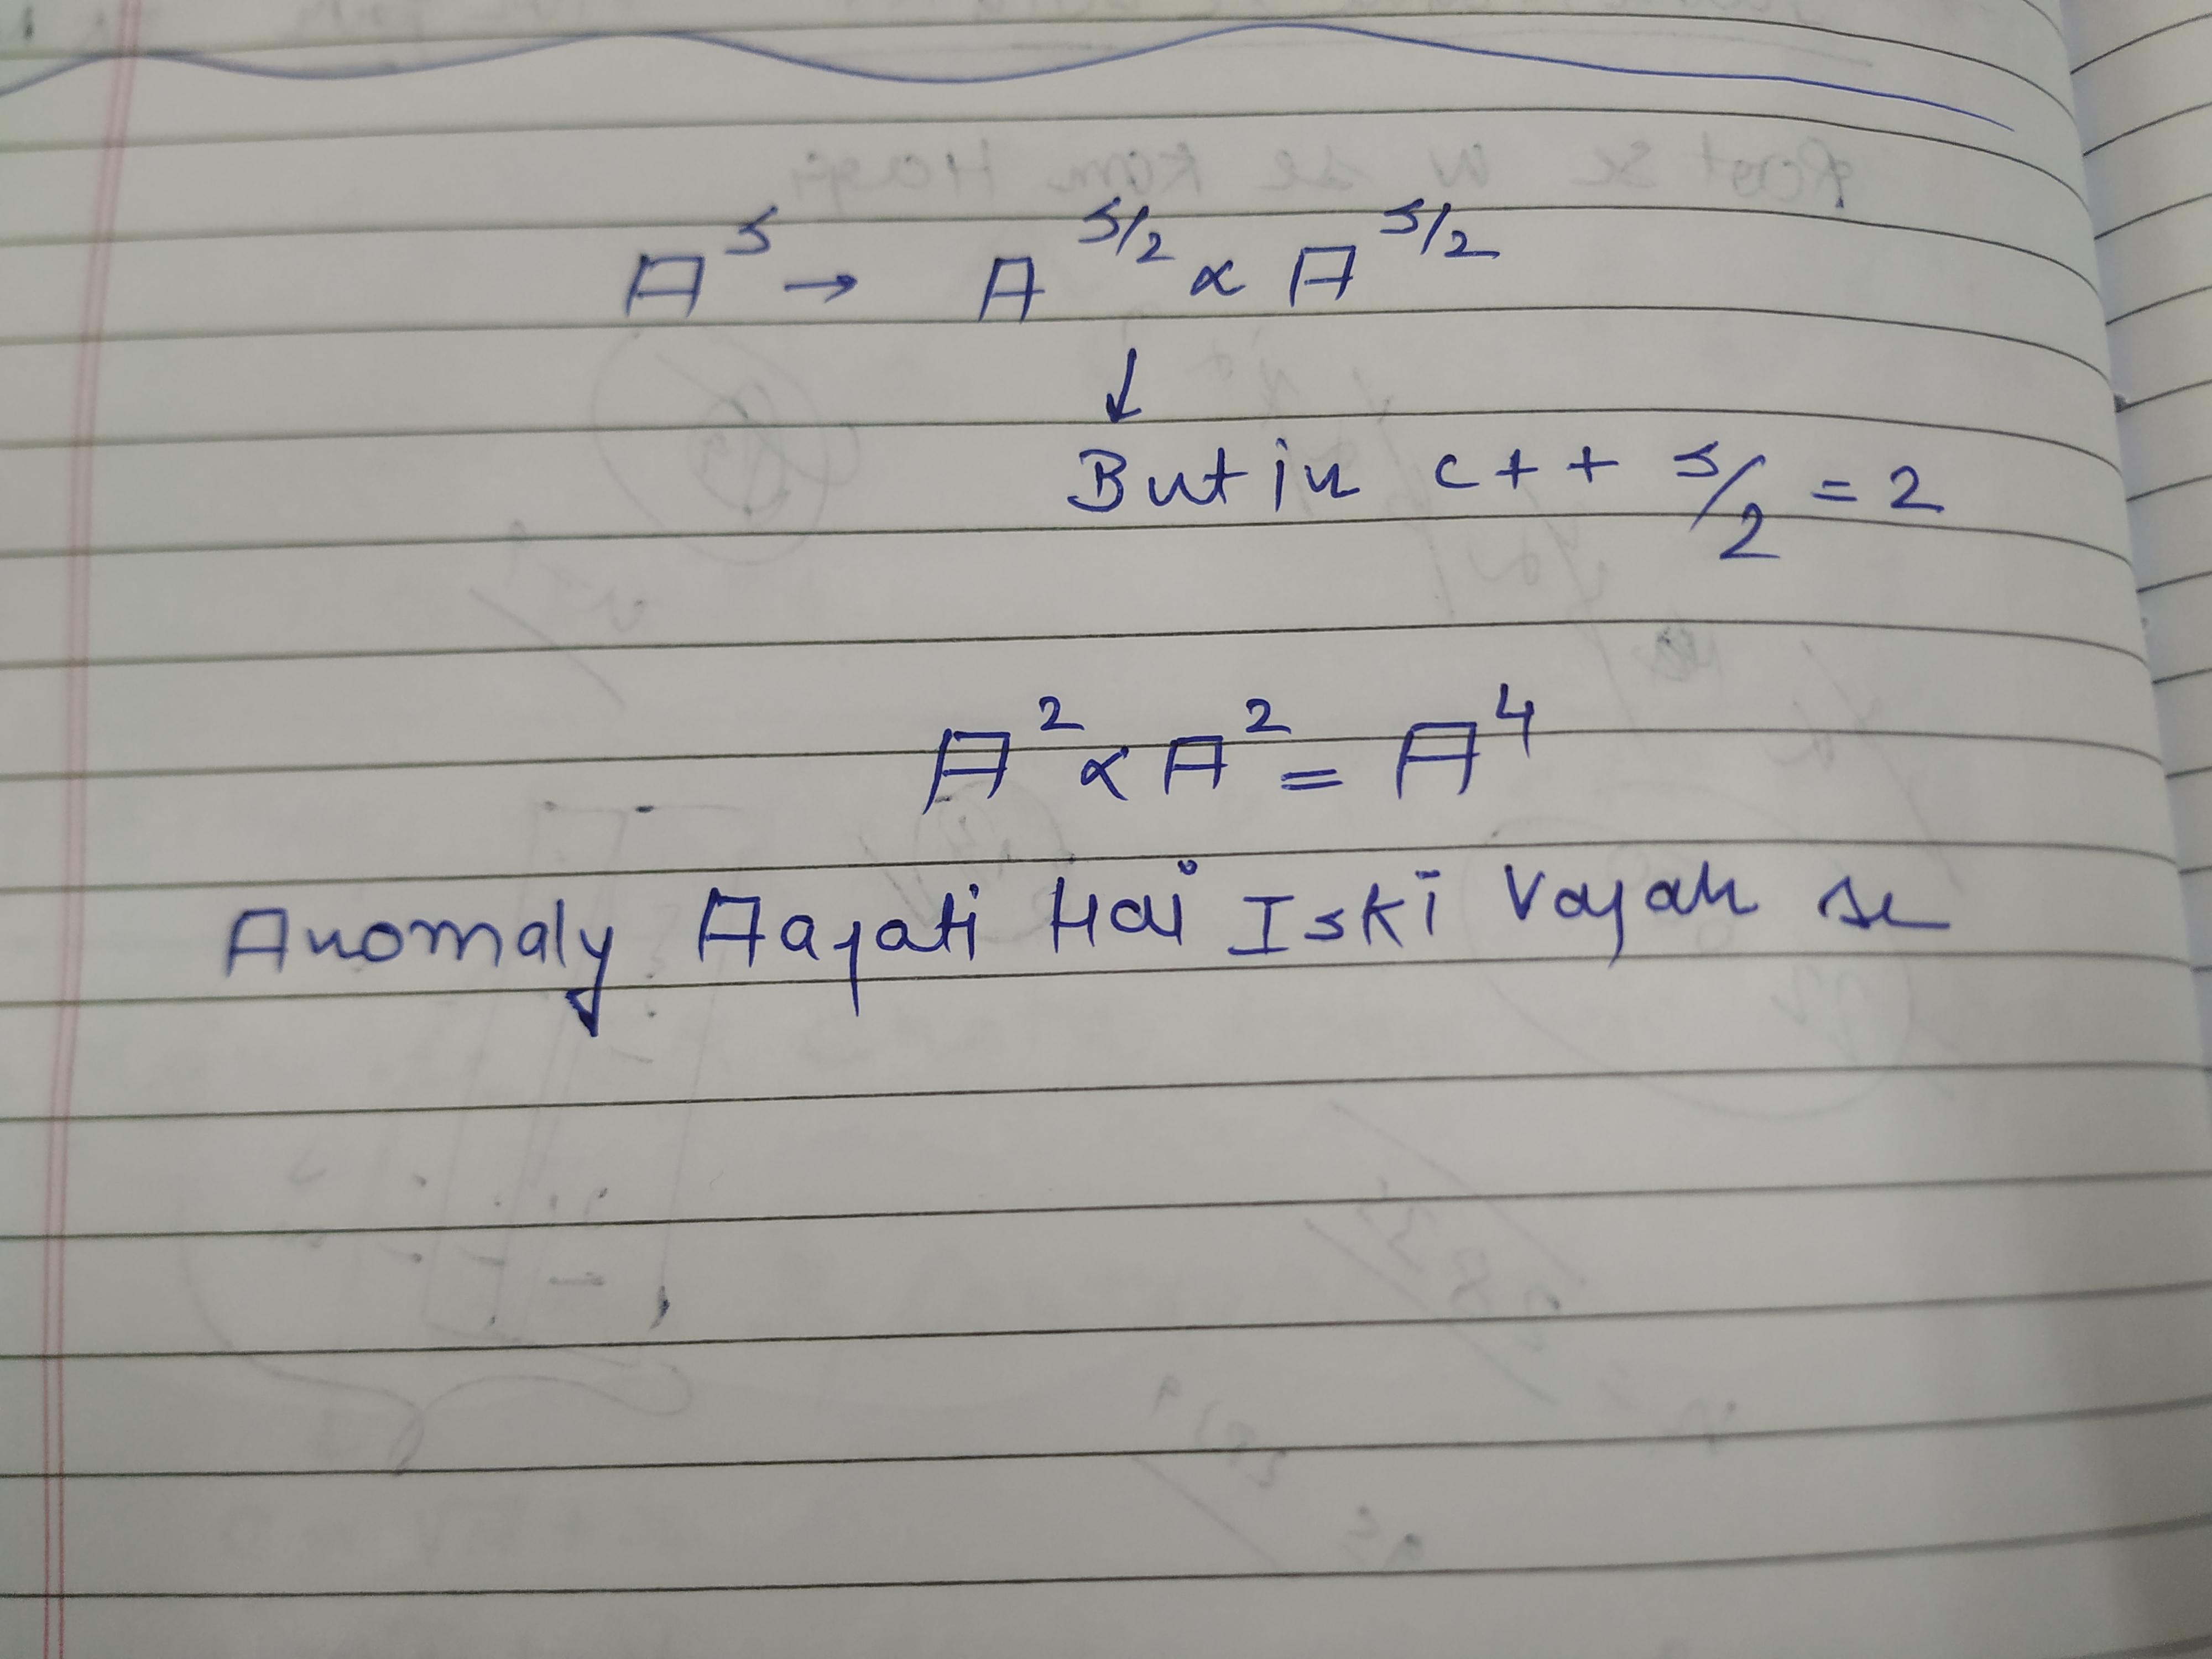 A⁵ → A⁵/² × A⁵/²
↓
But in c++ 5/2 = 2
A² × A² = A⁴
Anomaly Aajati Hai Iski Vajah se